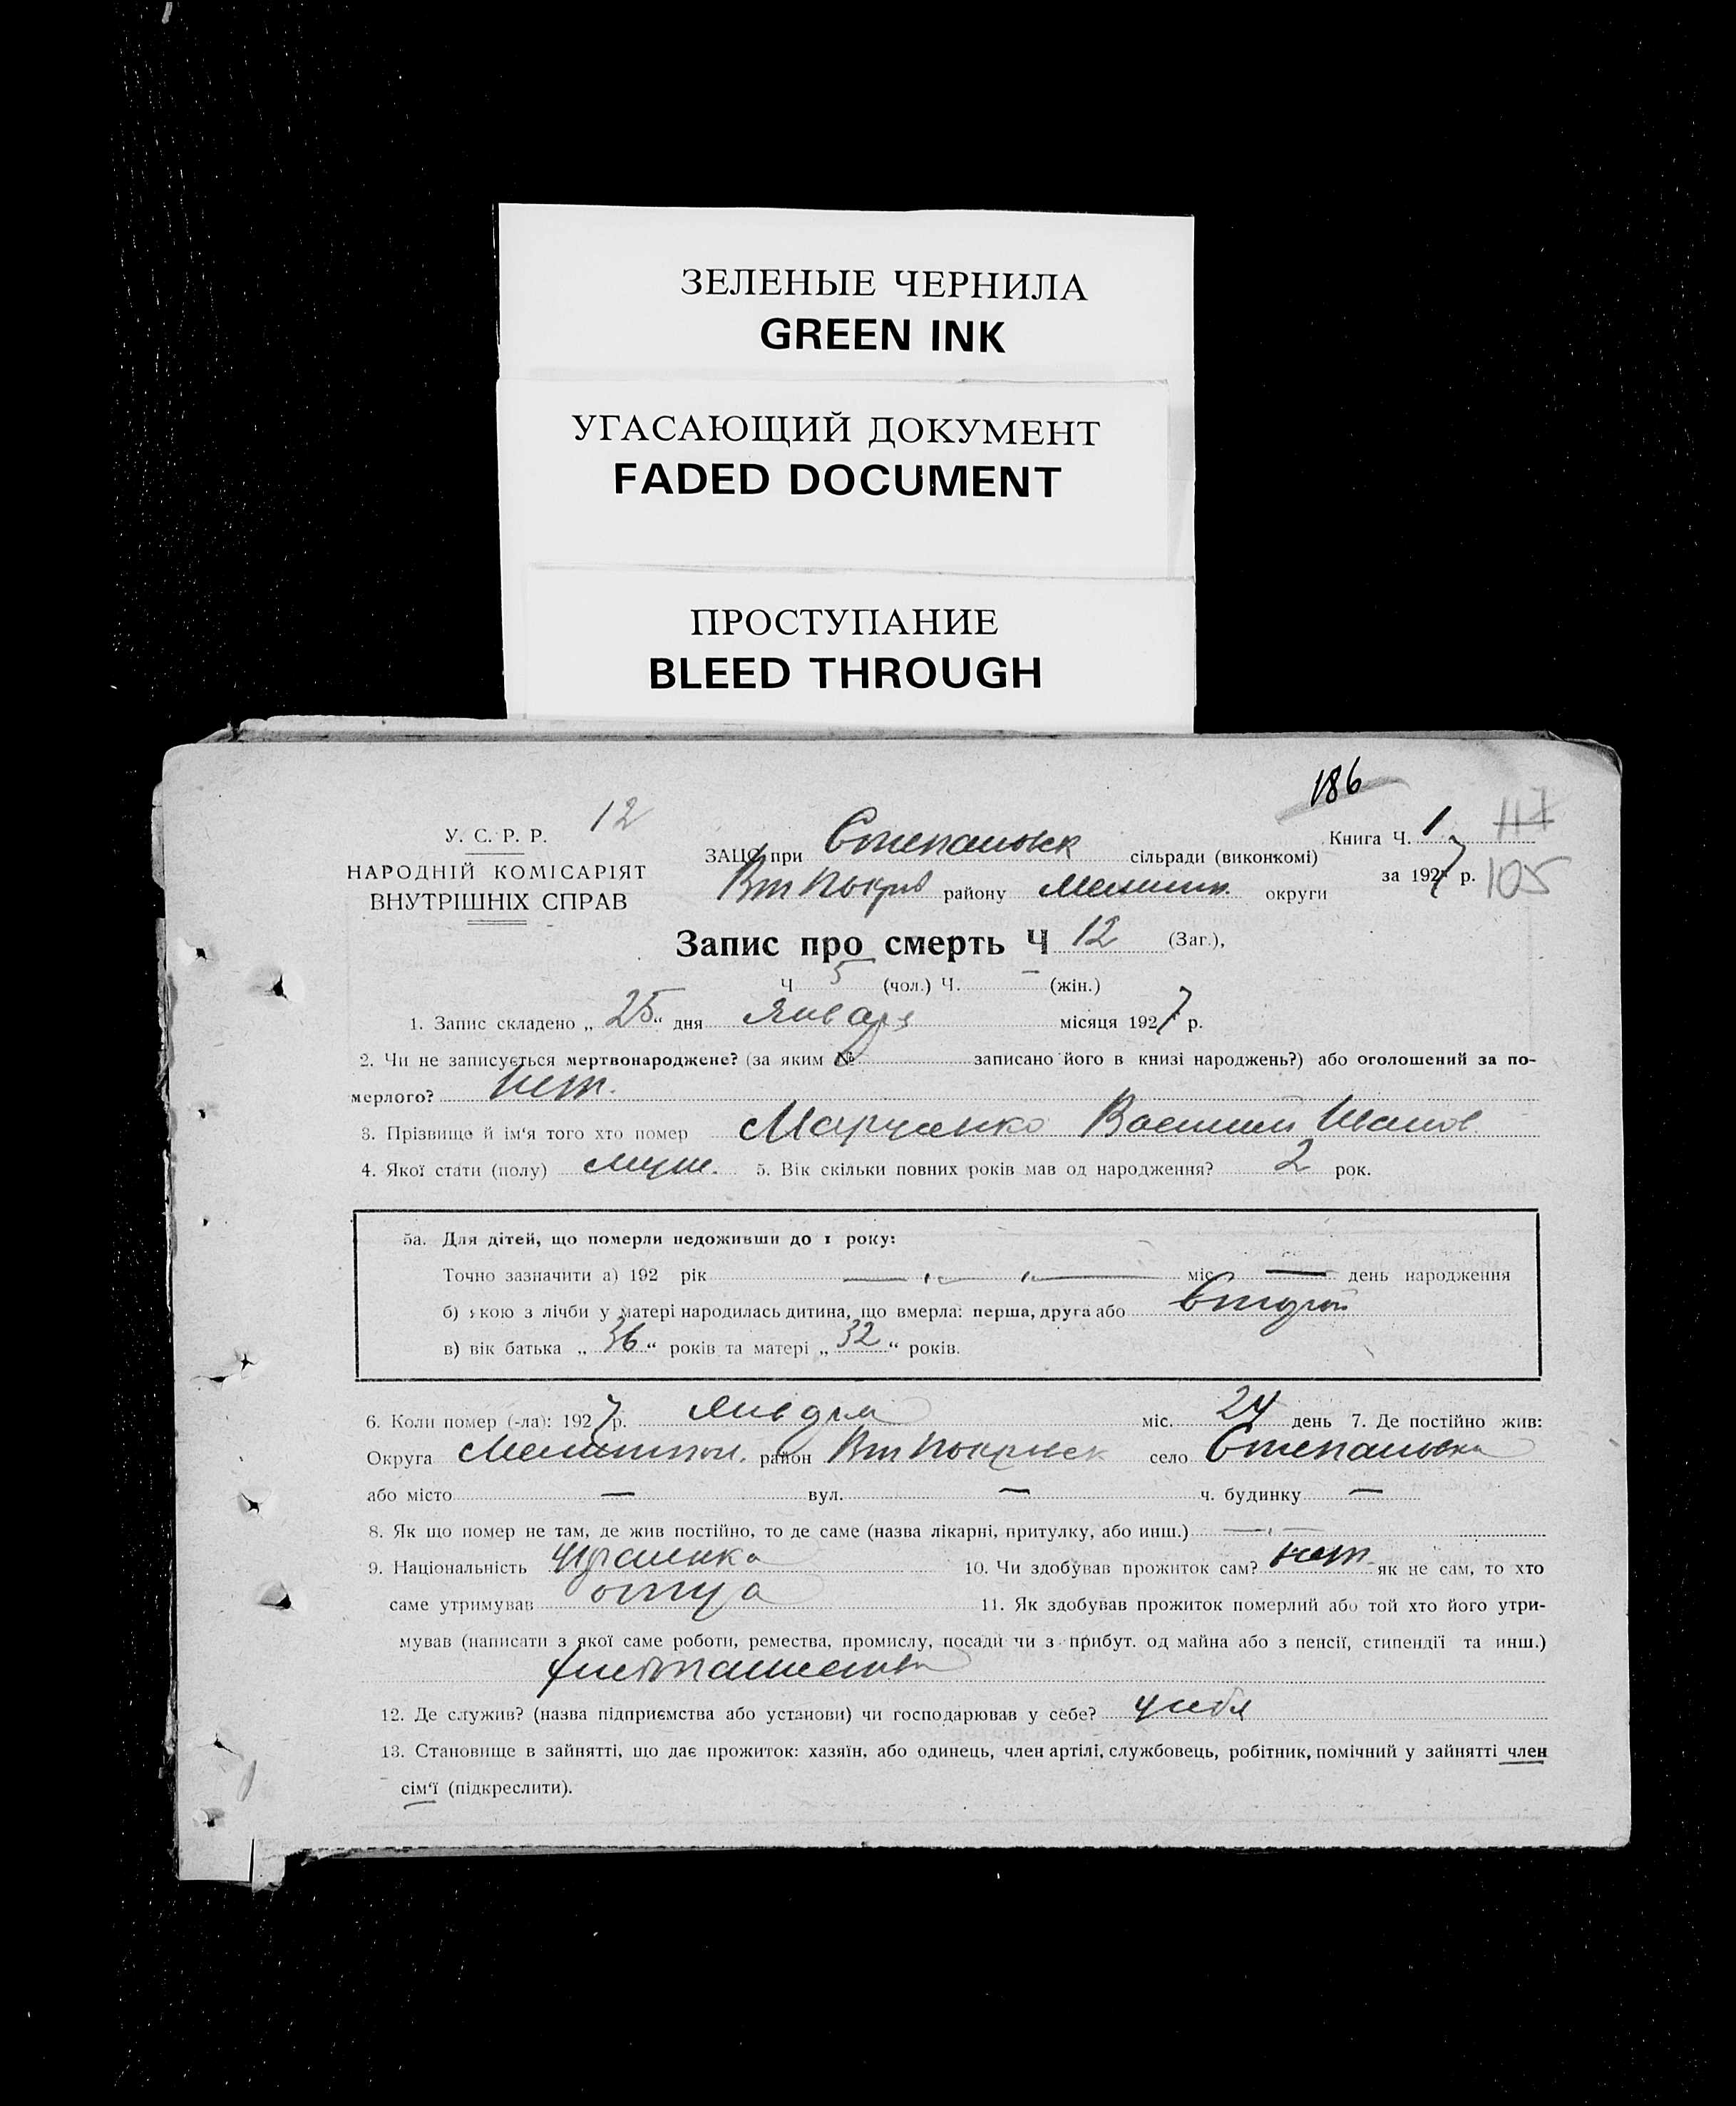 ЗЕЛЕНЫЕ ЧЕРНИЛА
GREEN INK
УГАСАЮЩИЙ ДОКУМЕНТ
FADED DOCUMENT
ПРОСТУПАНИЕ
BLEED THROUGH
186
У. С. Р. Р. 12
НАРОДНІЙ КОМІСАРІЯТ
ВНУТРІШНІХ СПРАВ
ЗАЦС при Степановск сільради (виконкомі)
Книга Ч. 1 117
Вт Покров району Мелитп. округи
за 1927 р. 105
Запис про смерть Ч 12 (Заг.),
Ч 5 (чол.) Ч. – (жін.)
1. Запис складено „ 25 “ дня Января місяця 1927 р.
2. Чи не записується мертвонароджене? (за яким № записано його в книзі народжень?) або оголошений за по-
мерлого? нет.
3. Прізвище й ім‘я того хто помер Марченко Василий Иванов.
4. Якої стати (полу) муж. 5. Вік скільки повних років мав од народження? 2 рок.
5а. Для дітей, що померли недоживши до 1 року:
Точно зазначити а) 192 рік — „ „ — міс — день народження
б) якою з лічби у матері народилась дитина, що вмерла: перша, друга або
в) вік батька „ 36 “ років та матері „ 32 “ років.
6. Коли помер (-ла): 1927 р. Января міс. 24 день 7. Де постійно жив:
Округа Мелитоп. район Вт Покровск село Степановка
або місто — вул. — ч. будинку —
8. Як що помер не там, де жив постійно, то де саме (назва лікарні, притулку, або инш.) — „ —
9. Національність 10. Чи здобував прожиток сам? нет як не сам, то хто
саме утримував отца 11. Як здобував прожиток померлий або той хто його утри-
мував (написати з якої саме роботи, ремества, промислу, посади чи з прибут. од майна або з пенсії, стипендії та инш.)
хлебпашества
12. Де служив? (назва підприємства або установи) чи господарював у себе? у себя
13. Становище в зайнятті, що дає прожиток: хазяїн, або одинець, член артілі, службовець, робітник, помічний у зайнятті член
сім‘ї (підкреслити).